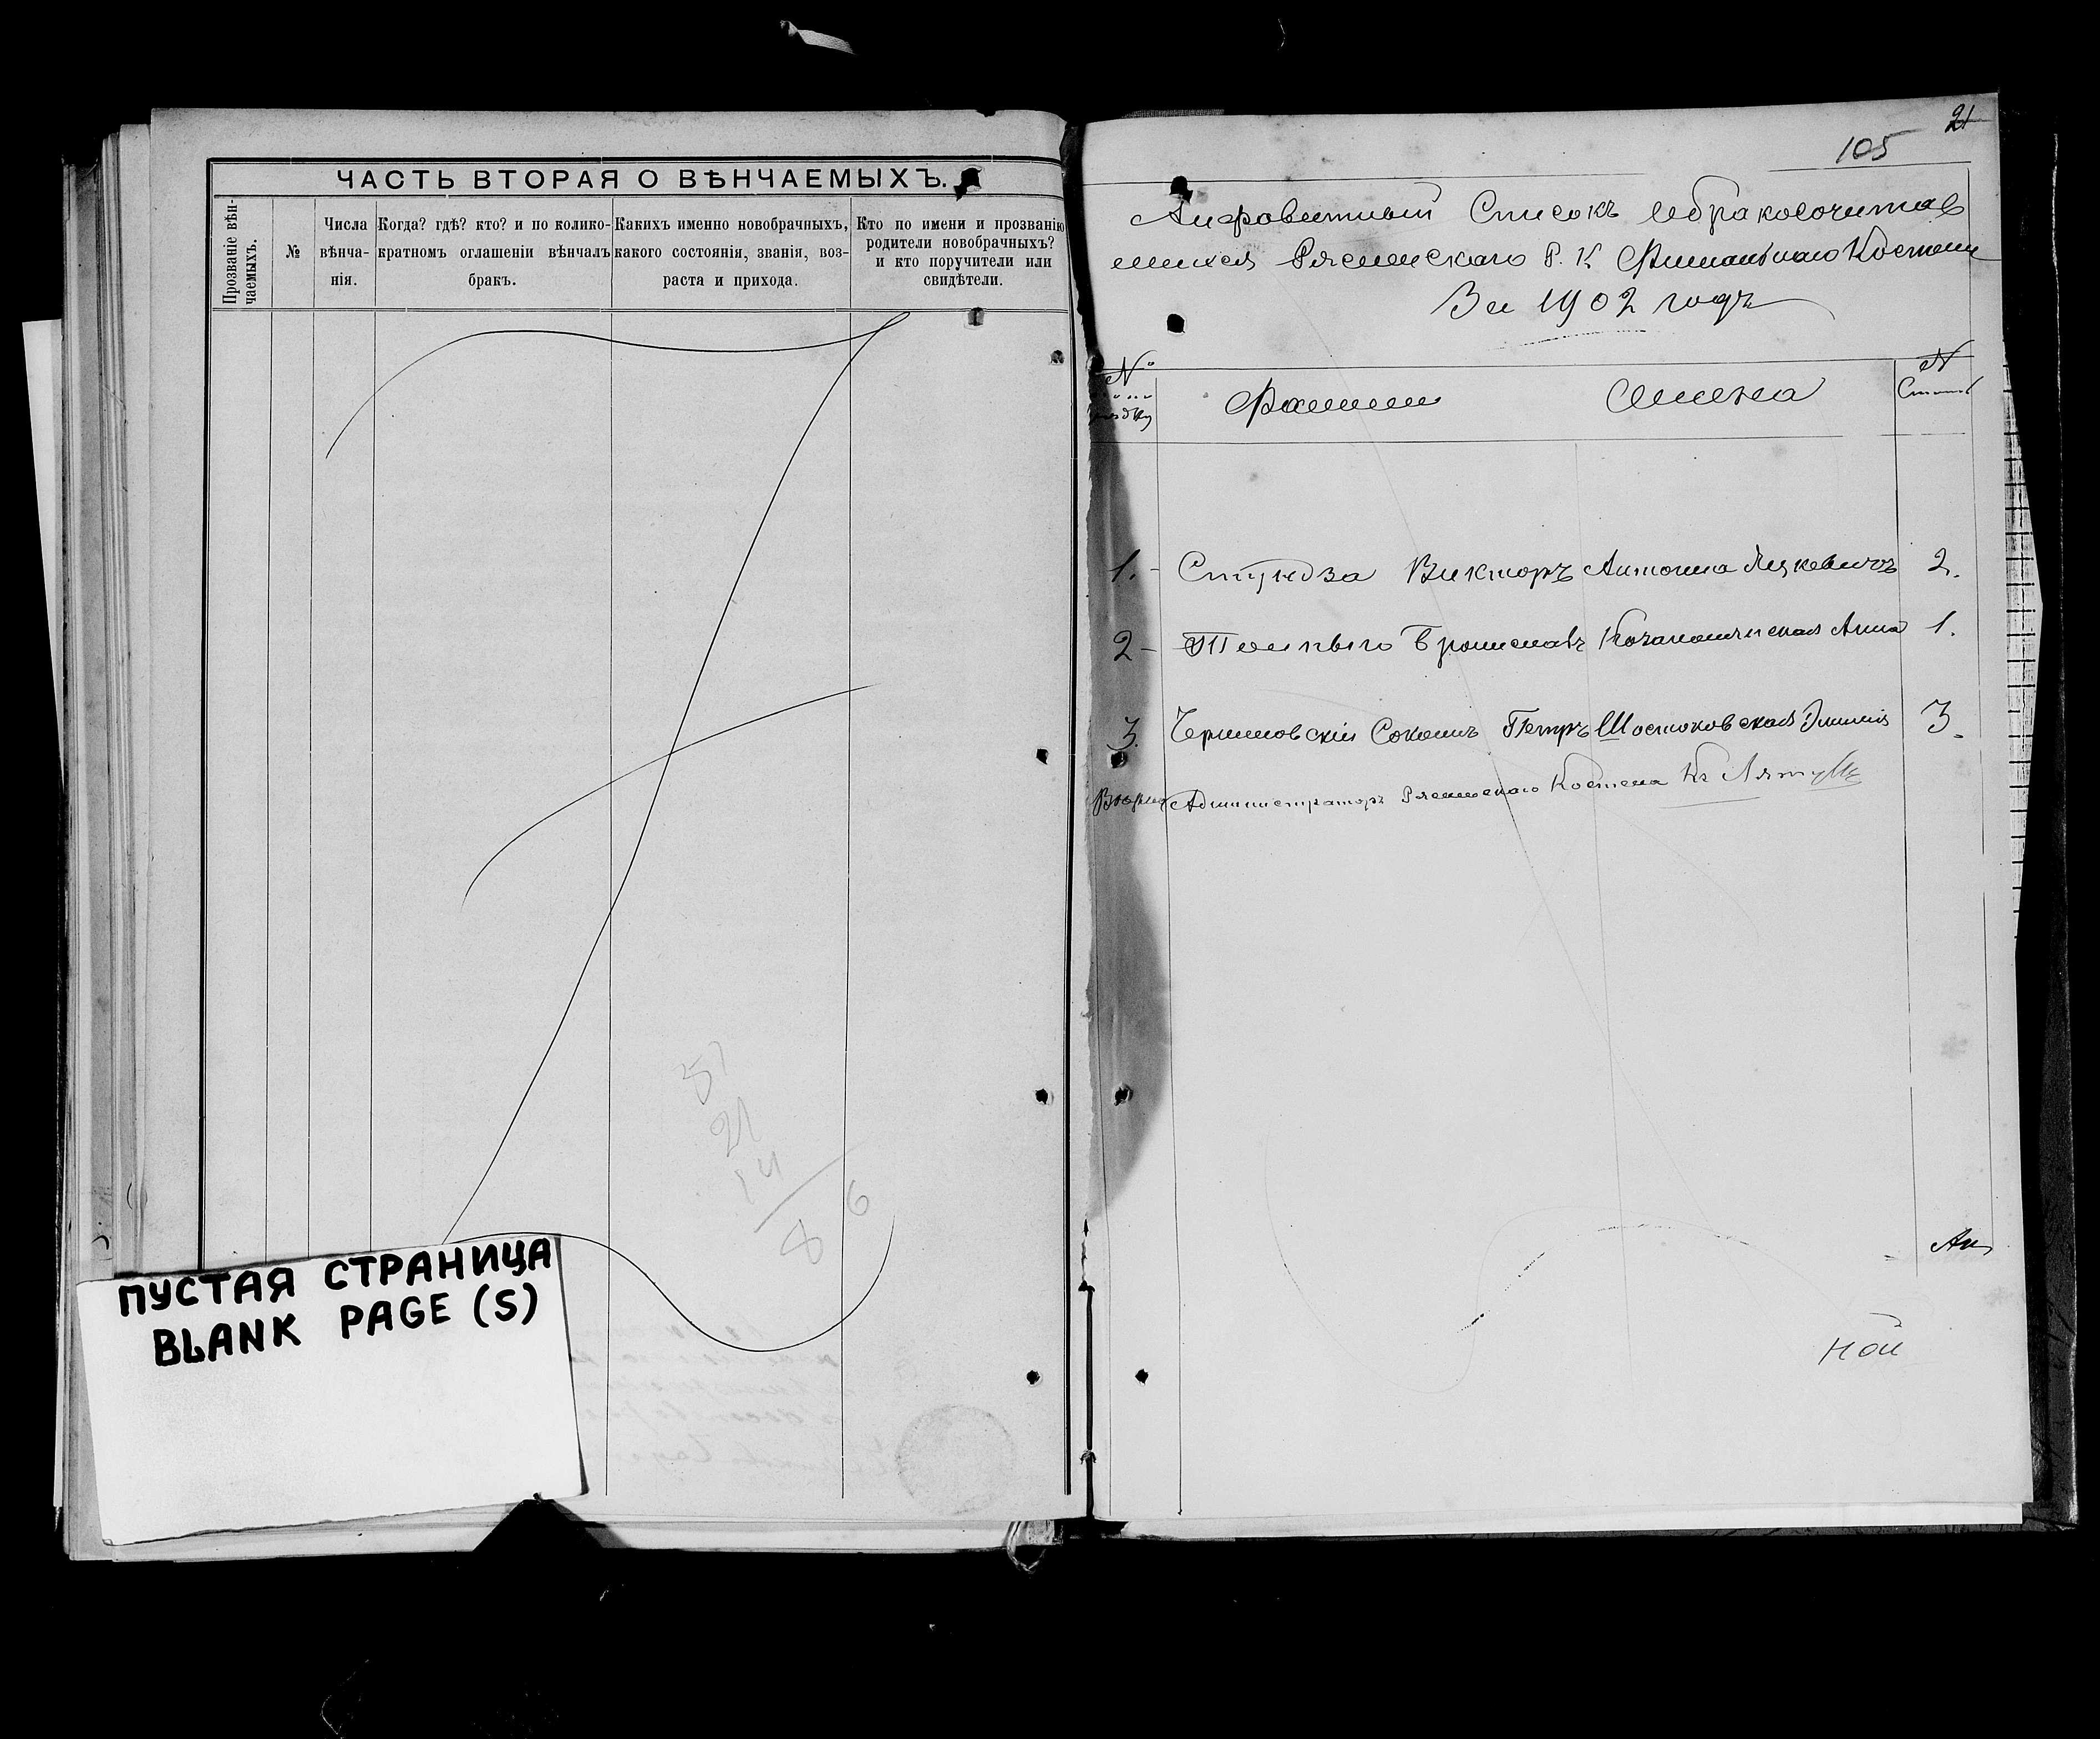 ЧАСТЬ ВТОРАЯ О ВѢНЧАЕМЫХЪ.
Прозваніе вѣн-
чаемыхъ.
№
Числа
вѣнча-
нія.
Когда? гдѣ? кто? и по колико-
кратномъ оглашеніи вѣнчалъ
бракъ.
Какихъ именно новобрачныхъ,
какого состоянія, званія, воз-
раста и прихода.
Кто по имени и прозванію
родители новобрачныхъ?
и кто поручители или
свидѣтели.
51
21
14
86
ПУСТАЯ СТРАНИЦА
BLANK PAGE (S)
21
105
Алфавитный Списокъ бракосочитав
шихся Рясненскаго Р. К. Филіальнаго Костела
За 1902 годъ
№
Фамиліи Имена
№
1. Стундза Викторъ Антонина Яцкевичъ 2.
2 Брониславъ Анна 1.
3. Петръ Шостаковская Эмилія 3.
Администраторъ Рясненскаго Костела Кс
ной